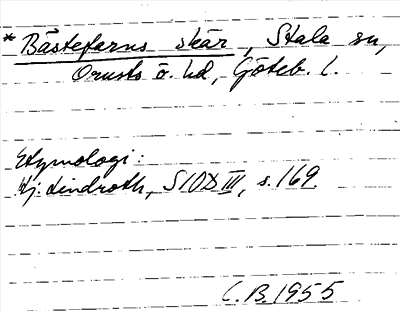 * Bästefarns skär, Stala sn,
Orusts ö. hd, Göteb. l.
Etymologi:
Hj. Lindroth, SIOD III, s. 169.
C.B. 1955